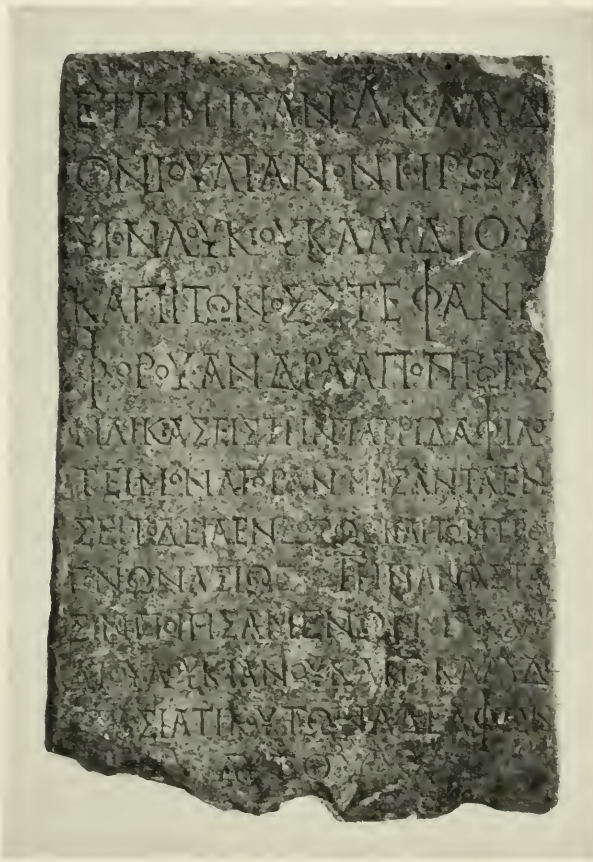 ΕΤΕΙΜΗΣΑΝ Λ ΚΛΑΥΔΙ
ΟΝ ΙΟΥΛΙΑΝΟΝ ΗΡΩΑ
ΥΙΟΝ ΛΟΥΚΙΟΥ ΚΛΑΥΔΙΟΥ
ΚΑΠΙΤΩΝΟΣ ΣΤΕΦΑΝΗ
ΦΟΡΟΥ ΑΝΔΡΑ ΑΠΟ ΠΡΩΤΗΣ
ΗΛΙΚΙΑΣ ΕΙΣ ΤΗΝ ΠΑΤΡΙΔΑ ΦΙΛΟ
ΤΕΙΜΟΝ ΑΓΟΡΑΝΟΜΗΣΑΝΤΑ ΕΝ
ΣΕΙΤΟΔΕΙΑ ΕΝΔΟΞΩΣ ΚΑΙ ΤΩΝ ΠΡΟ
ΓΟΝΩΝ ΑΞΙΩΣ ΤΗΝ ΑΝΑΣΤΑ
ΣΙΝ ΠΟΙΗΣΑΜΕΝΩΝ ΚΛΑΥ
ΔΙΟΥ ΛΥΚΙΑΝΟΥ ΚΑΙ ΚΛΑΥΔΙ
ΟΥ ΑΣΙΑΤΙΚΟΥ ΤΩΝ ΑΔΕΛΦΩΝ
ΑΥΤΟΥ